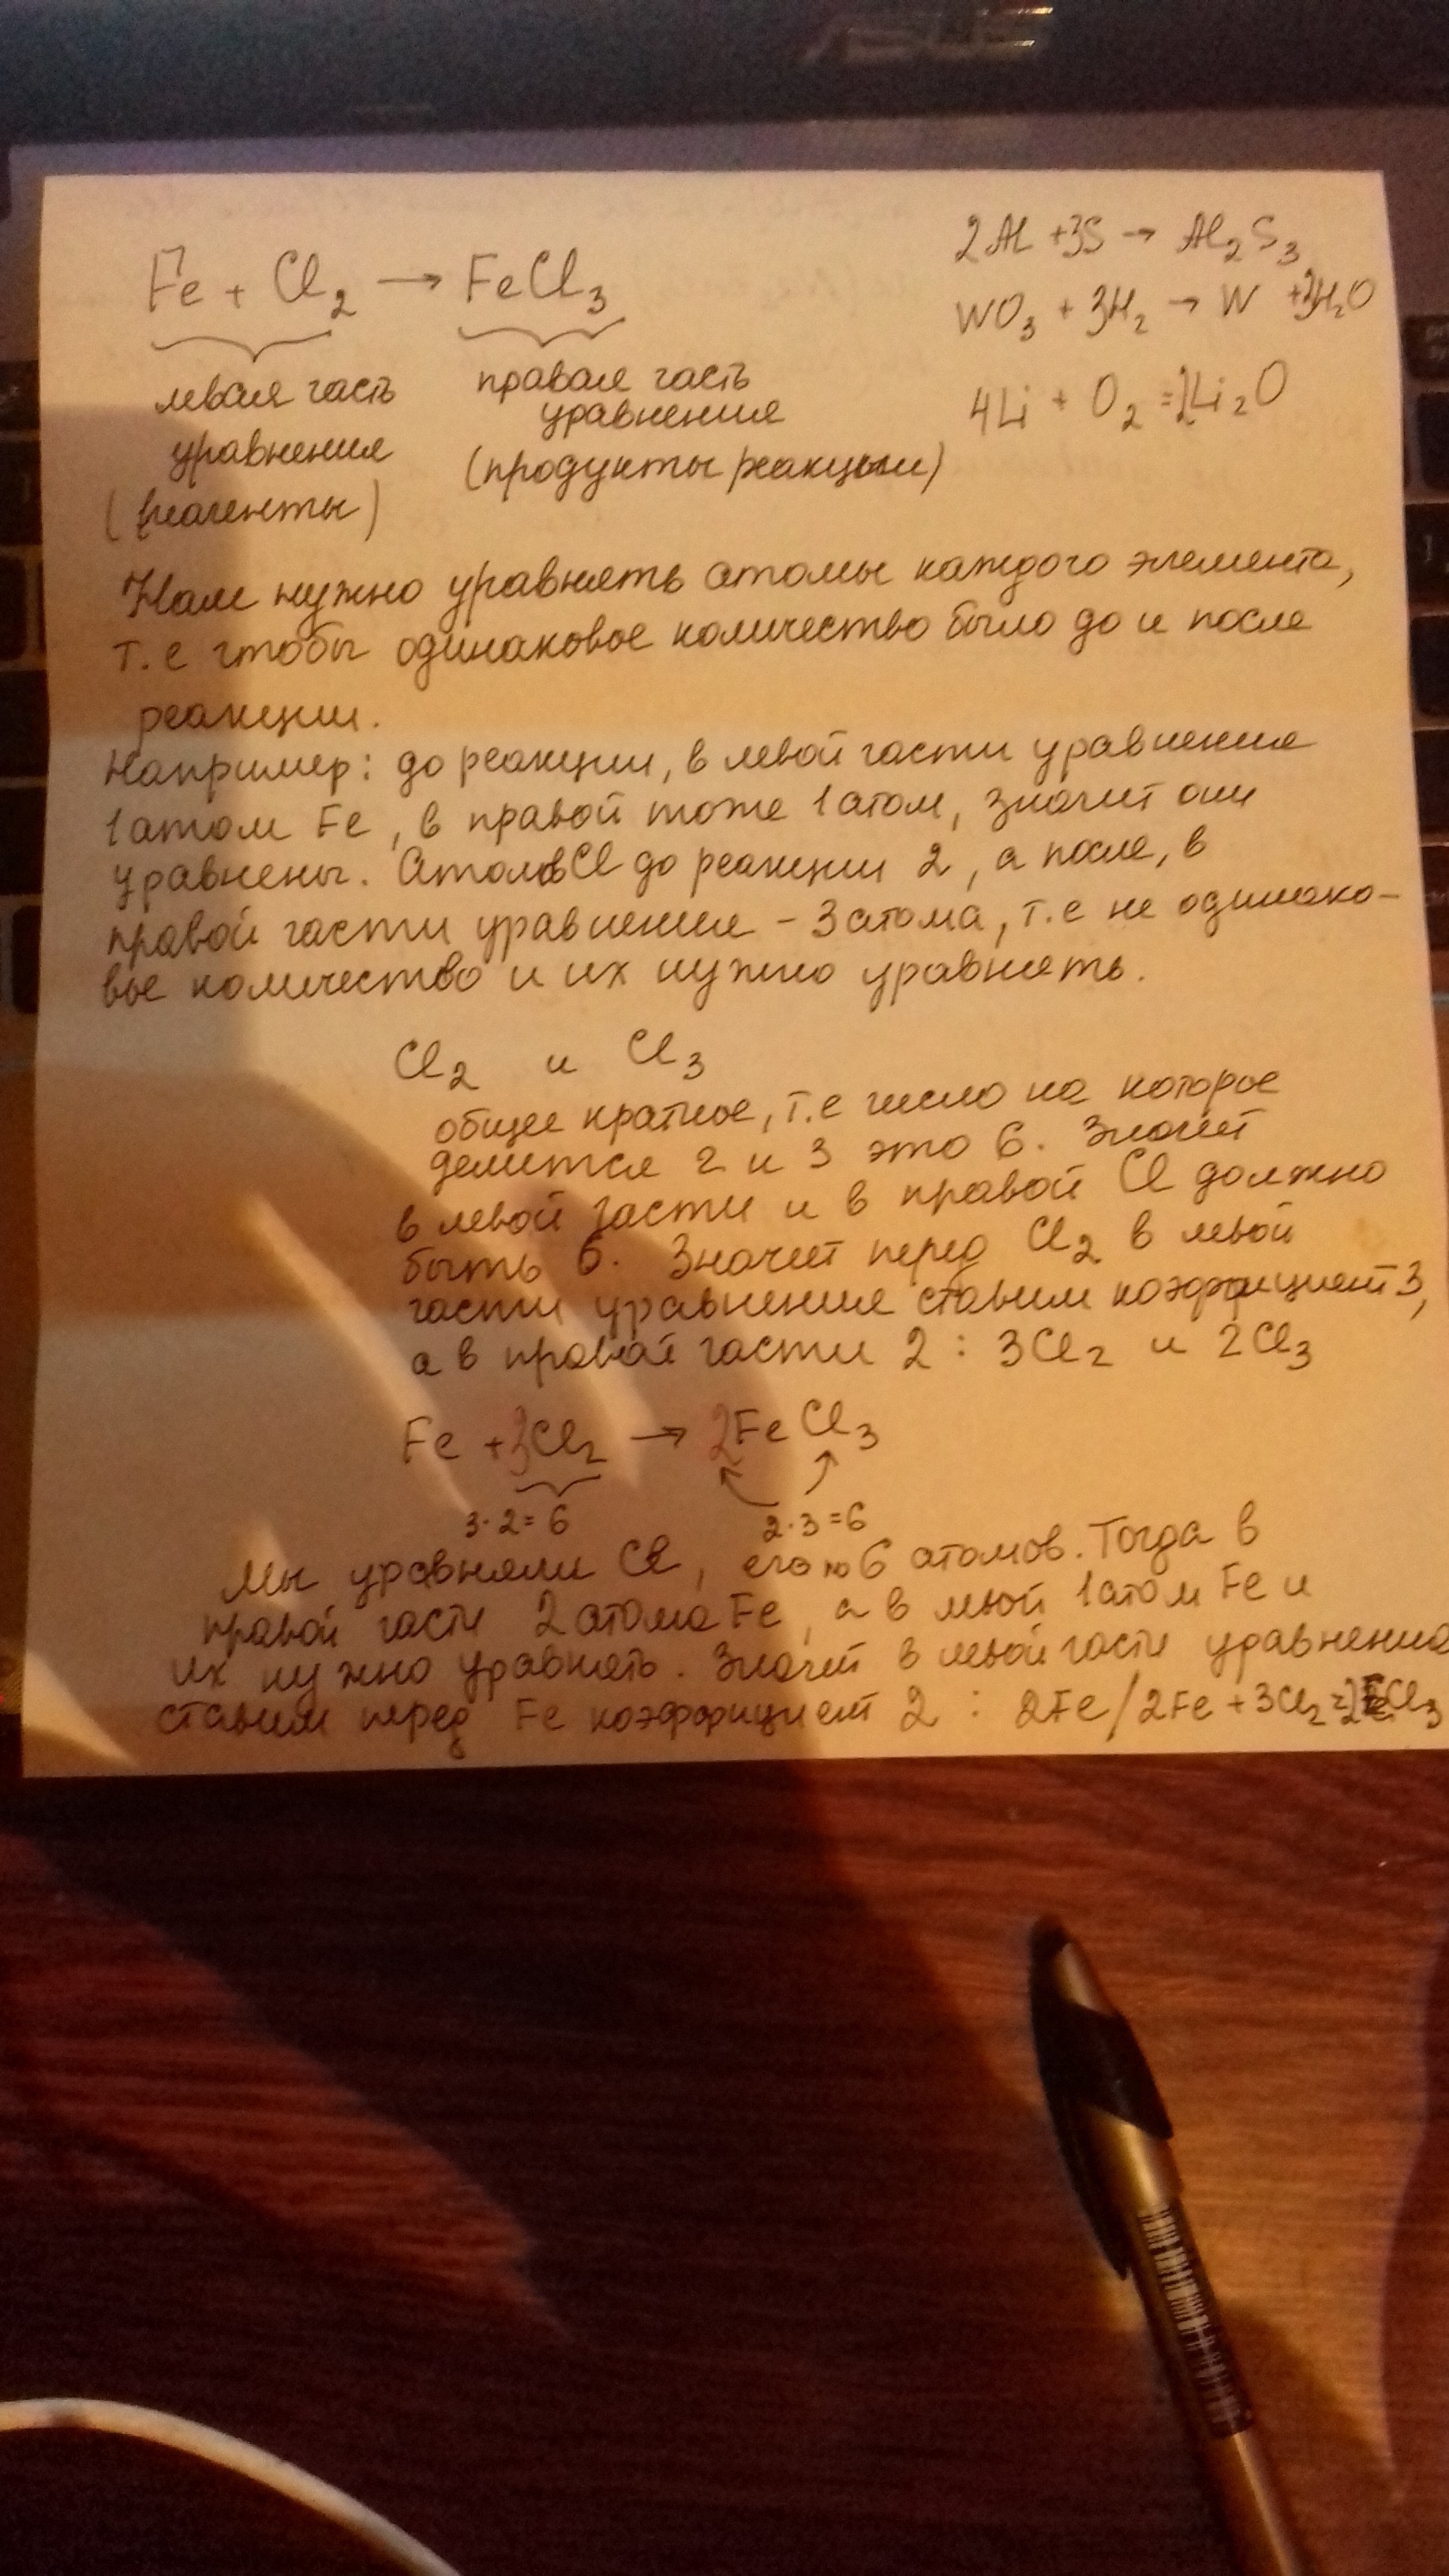 ASUS
Fe + Cl₂ → FeCl₃
левая часть
уравнения
(реагенты)
правая часть
уравнения
(продукты реакции)
2Al + 3S → Al₂S₃
WO₃ + 3H₂ → W + 3H₂O
4Li + O₂ = 2Li₂O
Нам нужно уравнять атомы каждого элемента,
т.е чтобы одинаковое количество было до и после
реакции.
Например: до реакции, в левой части уравнения
1 атом Fe, в правой тоже 1 атом, значит они
уравнены. Атомов Cl до реакции 2, а после, в
правой части уравнения – 3 атома, т.е не одинако-
вое количество и их нужно уравнять.
Cl₂ и Cl₃
общее кратное, т.е число на которое
делится 2 и 3 это 6. Значит
в левой части и в правой Cl должно
быть 6. Значит перед Cl₂ в левой
части уравнения ставим коэффициент 3,
а в правой части 2 : 3Cl₂ и 2Cl₃
Fe + 3Cl₂ → 2FeCl₃
3·2=6 2·3=6
Мы уравняли Cl, его по 6 атомов. Тогда в
правой части 2 атома Fe, а в левой 1 атом Fe и
их нужно уравнять. Значит в левой части уравнения
ставим перед Fe коэффициент 2 : 2Fe / 2Fe + 3Cl₂ = 2FeCl₃